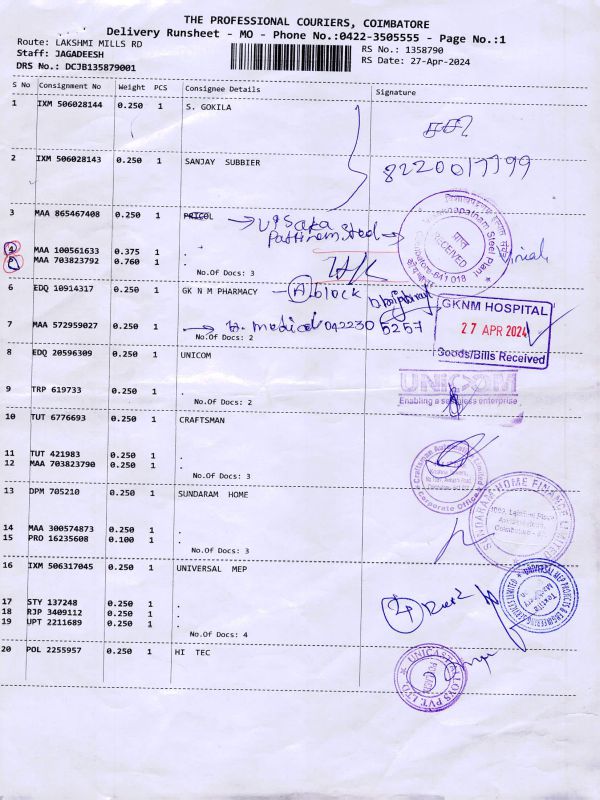 THE PROFESSIONAL COURIERS, COIMBATORE
Delivery Runsheet - MO - Phone No.:0422-3505555 - Page No.:1
Route: LAKSHMI MILLS RD
RS No.: 1358790
Staff: JAGADEESH
RS Date: 27-Apr-2024
DRS No.: DCJB135879001
S No Consignment No Weight PCS Consignee Details Signature
1 IXM 506028144 0.250 1 S. GOKILA
2 IXM 506028143 0.250 1 SANJAY SUBBIER 8220017799
3 MAA 865467408 0.250 1 PRICOL Visaka
Pattinam Steel
RECEIVED
Coimbatore-641 018
4 MAA 100561633 0.375 1 .
5 MAA 703823792 0.760 1 .
No.Of Docs: 3
6 EDQ 10914317 0.250 1 GK N M PHARMACY A block
GKNM HOSPITAL
27 APR 2024
Goods/Bills Received
7 MAA 572959027 0.250 1 medical 042230 5257
No.Of Docs: 2
8 EDQ 20596309 0.250 1 UNICOM
UNICOM
Enabling a seamless enterprise
9 TRP 619733 0.250 1 .
No.Of Docs: 2
10 TUT 6776693 0.250 1 CRAFTSMAN
11 TUT 421983 0.250 1 .
12 MAA 703823790 0.250 1 .
No.Of Docs: 3
Corporate Office
13 DPM 705210 0.250 1 SUNDARAM HOME
SUNDARAM HOME FINANCE LIMITED
14 MAA 300574873 0.250 1 .
15 PRO 16235608 0.100 1 .
No.Of Docs: 3
16 IXM 506317045 0.250 1 UNIVERSAL MEP
UNIVERSAL MEP PROJECTS & ENGINEERING SERVICES LIMITED
17 STY 137248 0.250 1 .
18 RJP 3409112 0.250 1 .
19 UPT 2211689 0.250 1 .
No.Of Docs: 4
20 POL 2255957 0.250 1 HI TEC
UNICAST ALLOYS PVT. LTD